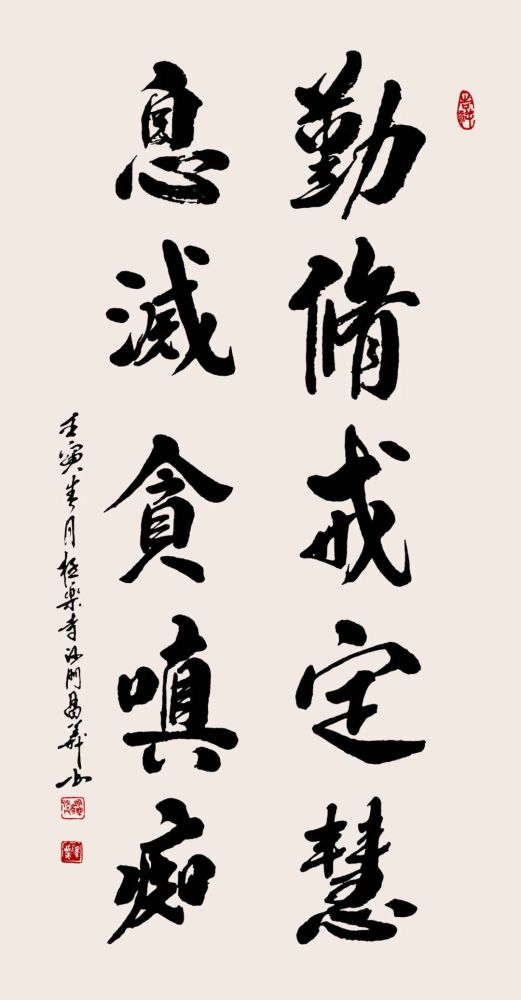 勤脩戒定慧
息滅貪嗔痴
壬寅春月極樂寺沙門昌義书